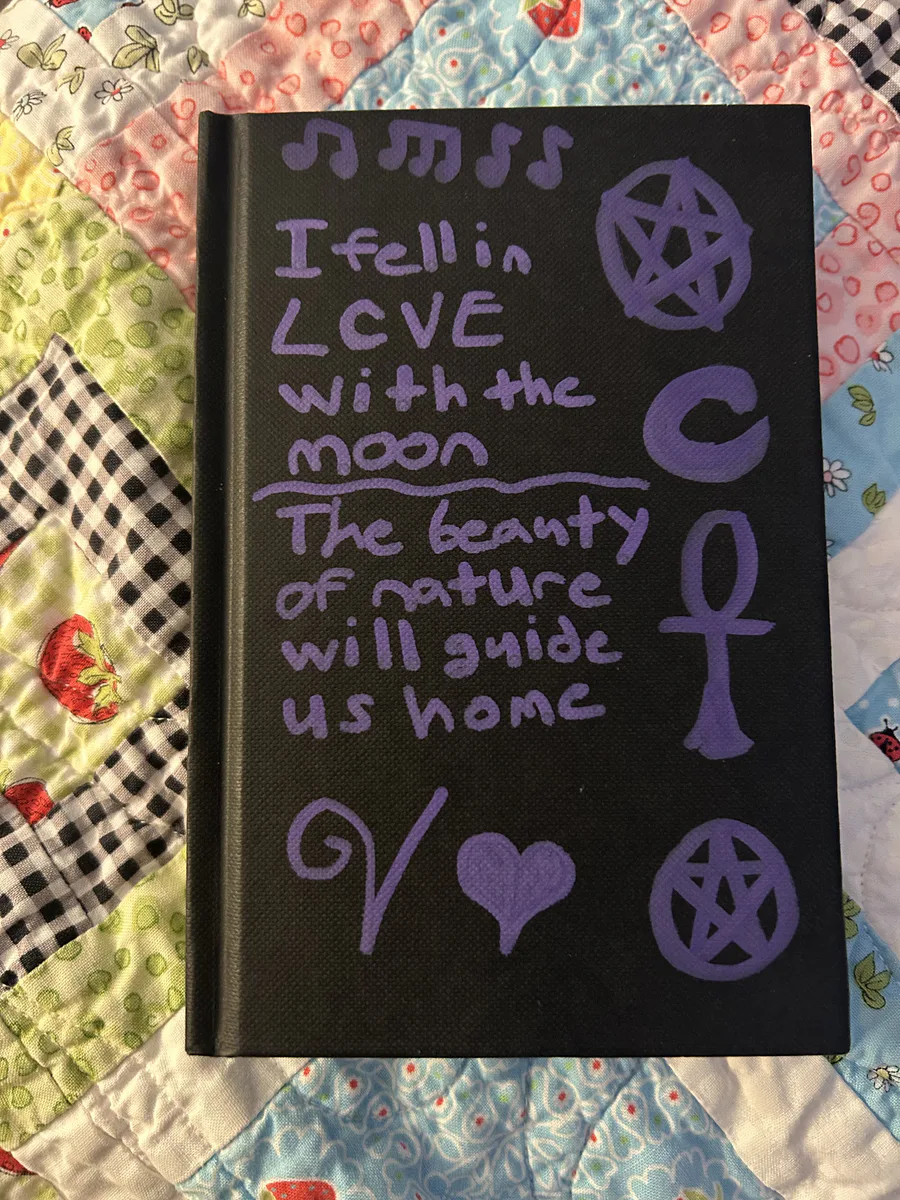 I fell in
LOVE
with the
moon
The beauty
of nature
will guide
us home
V